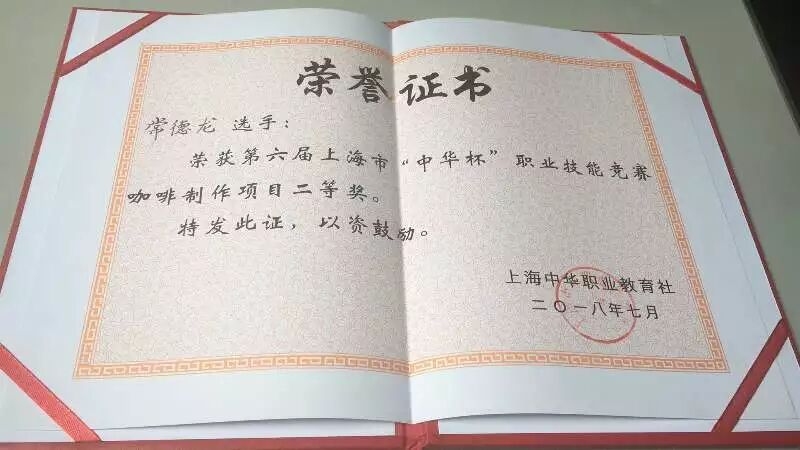 荣誉证书
常德龙 选手：
荣获第六届上海市“中华杯”职业技能竞赛
咖啡制作项目二等奖。
特发此证，以资鼓励。
上海中华职业教育社
二〇一八年七月